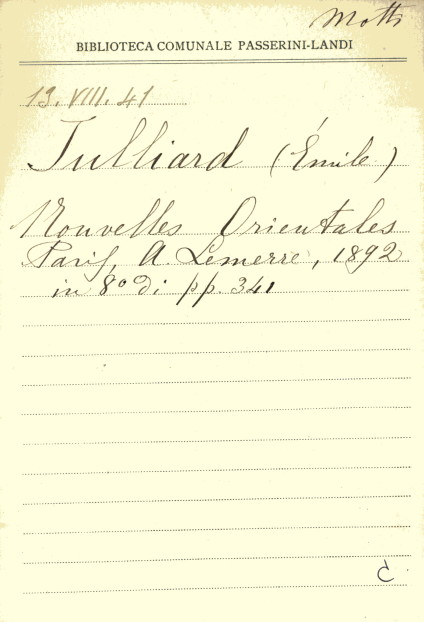 Motti
BIBLIOTECA COMUNALE PASSERINI-LANDI
13.VIII.41
Julliard (Émile)
Nouvelles Orientales
Paris, A. Lemerre, 1892
in 8º di pp. 341
C